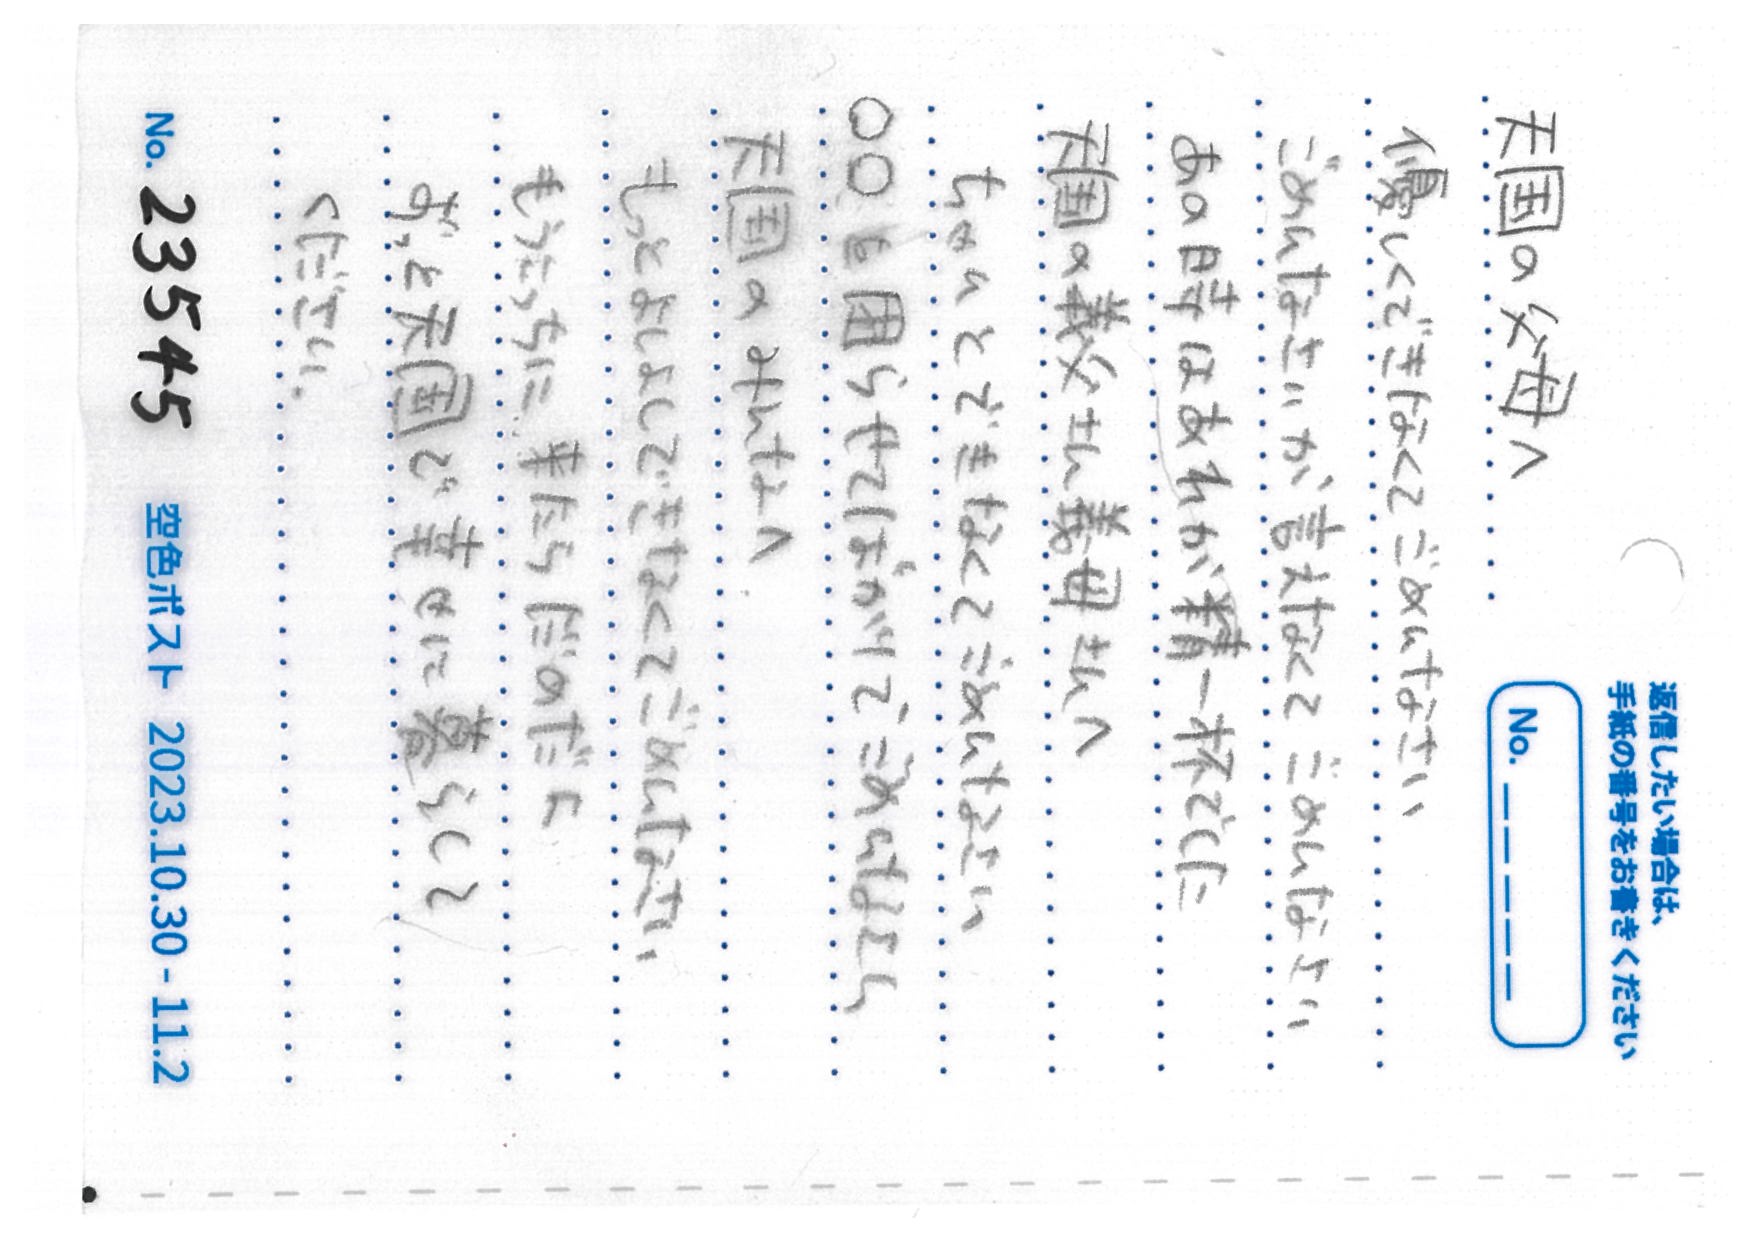 返信したい場合は、
手紙の番号をお書きください
No.
天国の父母へ
優しくできなくてごめんなさい
ごめんなさいが言えなくてごめんなさい
あの時はあれが精一杯でした
天国の義父さん義母さんへ
ちゃんとできなくてごめんなさい
○○も困らせてばかりでごめんなさい
天国のみんなへ
もっとよしよしできなくてごめんなさい
来たらだめだ
ずっと天国で幸せに暮らして
ください。
No. 23545 空色ポスト 2023.10.30 - 11.2